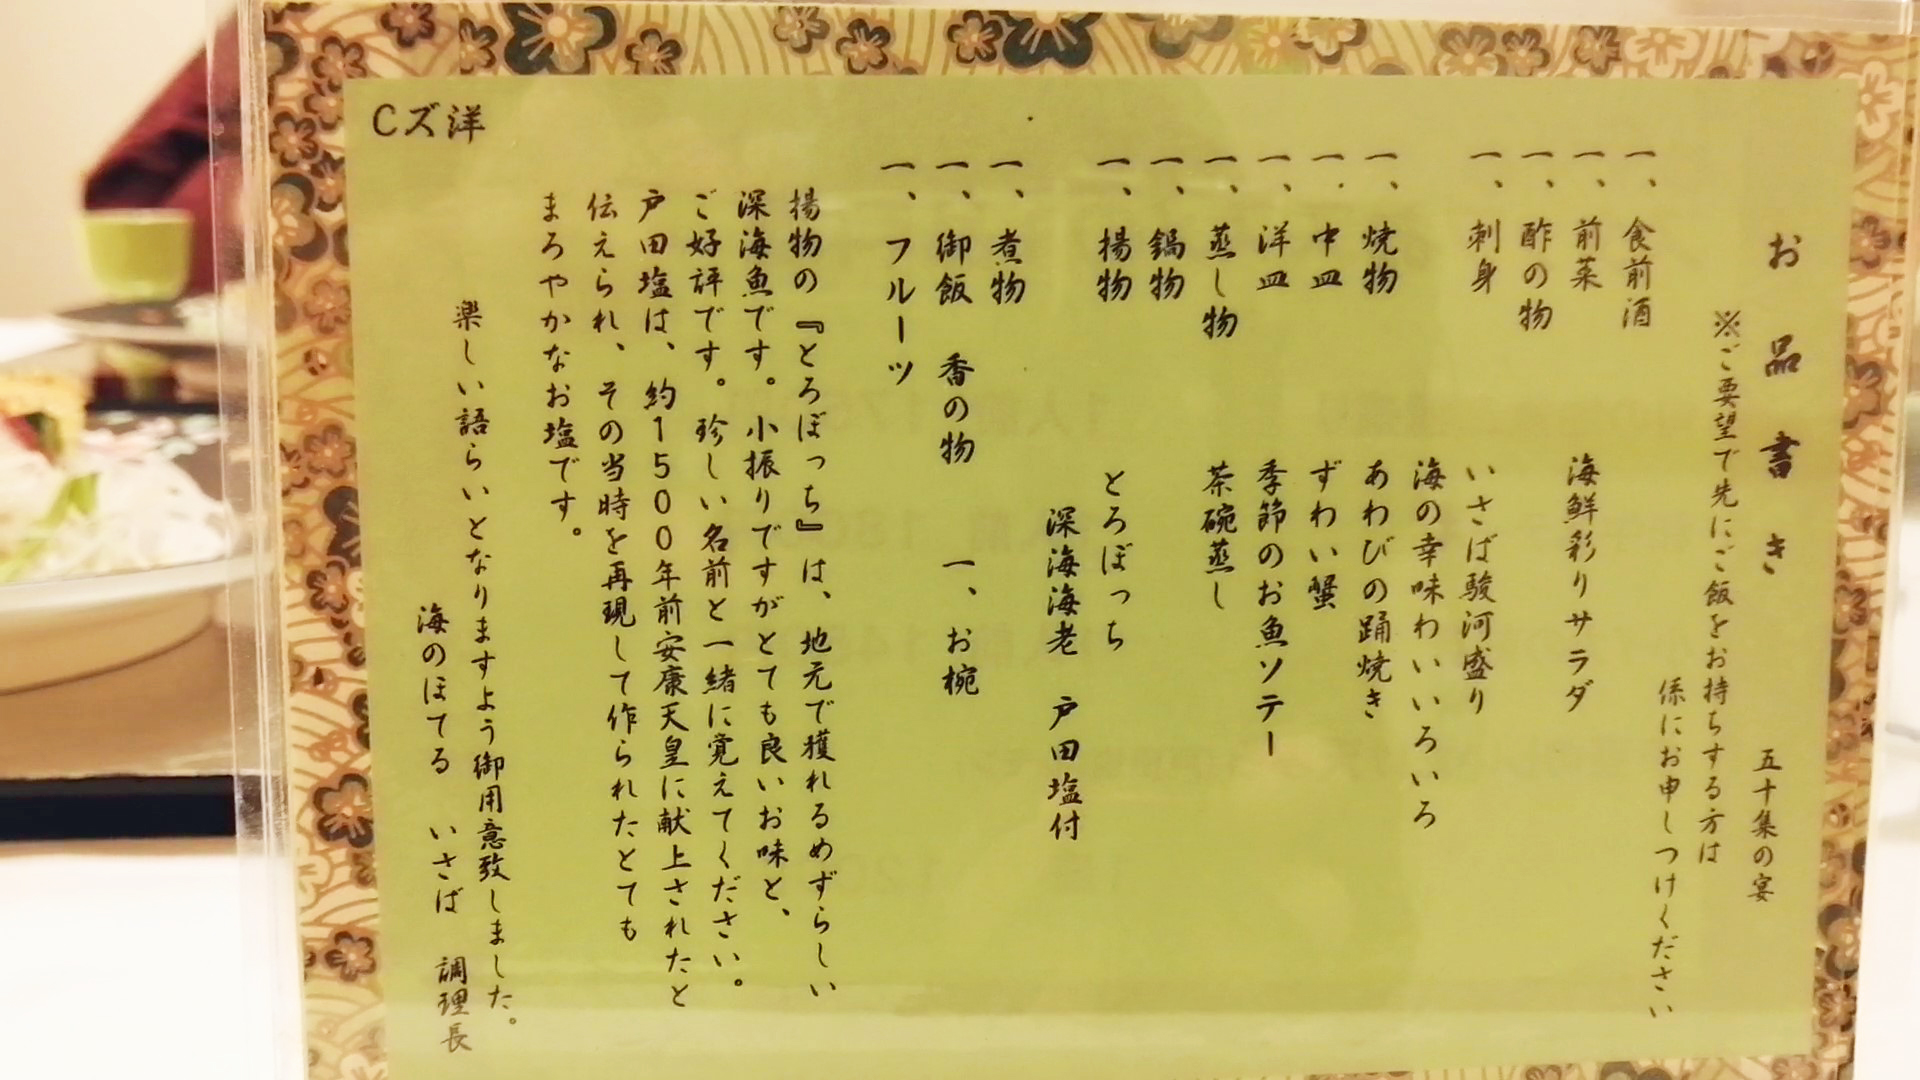 お品書き 五十集の宴
※ご要望で先にご飯をお持ちする方は
係にお申しつけください
一、食前酒
一、前菜 海鮮彩りサラダ
一、酢の物
一、刺身 いさば駿河盛り
海の幸味わいいろいろ
一、焼物 あわびの踊焼き
一、中皿 ずわい蟹
一、洋皿 季節のお魚ソテー
一、蒸し物 茶碗蒸し
一、鍋物
一、揚物 とろぼっち
深海海老 戸田塩付
一、煮物
一、御飯 香の物 一、お椀
一、フルーツ
揚物の『とろぼっち』は、地元で獲れるめずらしい
深海魚です。小振りですがとても良いお味と、
ご好評です。珍しい名前と一緒に覚えてください。
戸田塩は、約1500年前安康天皇に献上されたと
伝えられ、その当時を再現して作られたとても
まろやかなお塩です。
楽しい語らいとなりますよう御用意致しました。
海のほてる いさば 調理長
Cズ洋